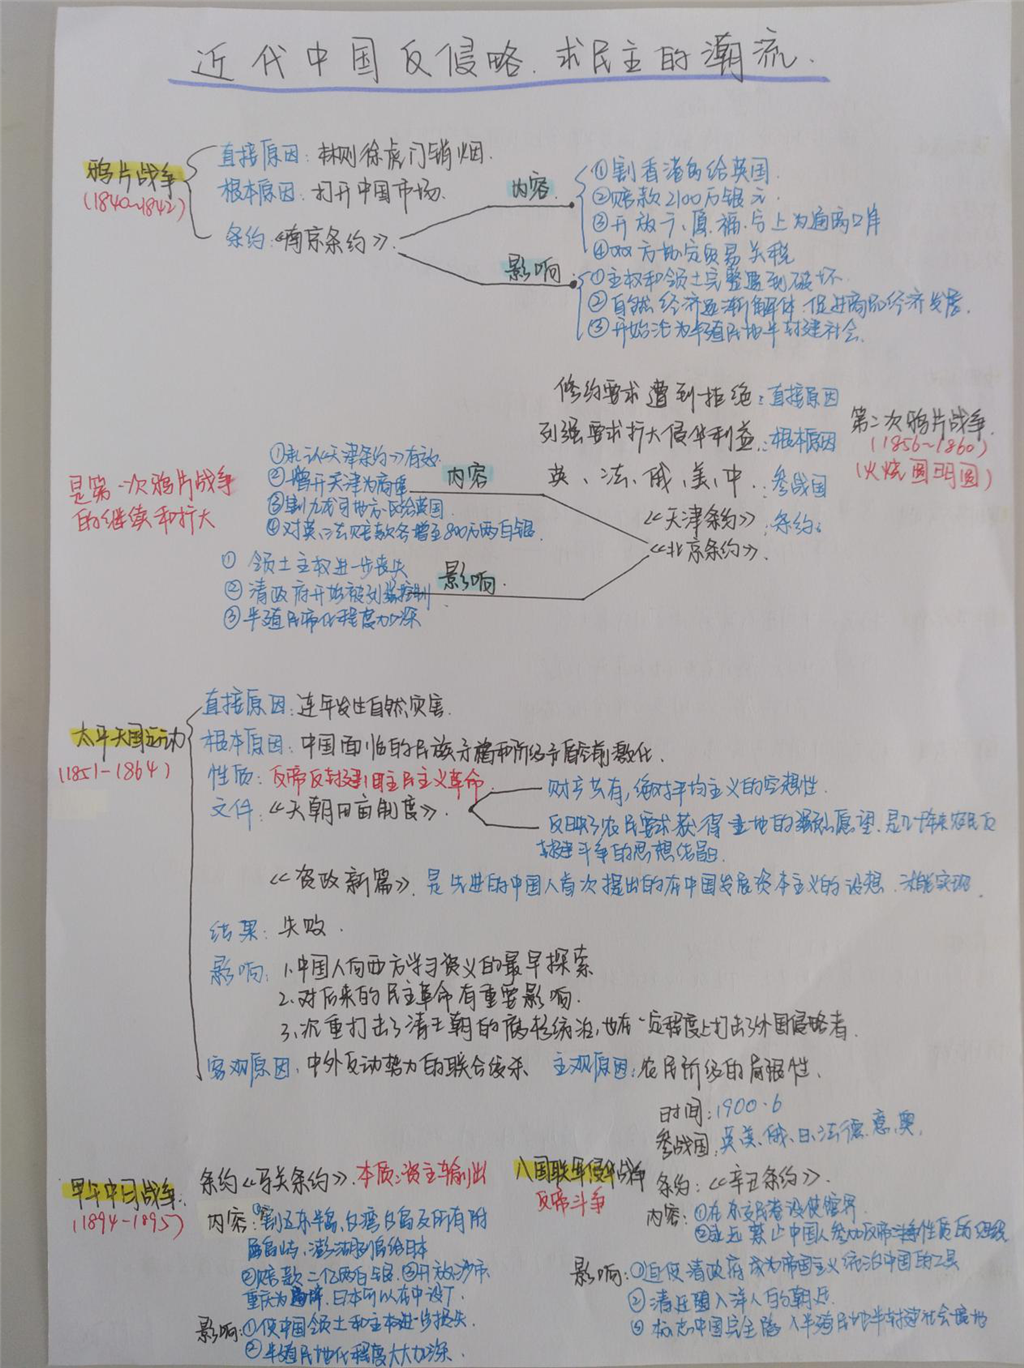 近代中国反侵略、求民主的潮流.
鸦片战争
(1840~1842)
直接原因:林则徐虎门销烟.
根本原因:打开中国市场.
条约:《南京条约》.
内容.
①割香港岛给英国.
②赔款2100万银元
③开放广、厦、福、宁、上为通商口岸
④双方协定贸易关税
影响
①主权和领土完整遭到破坏.
②自然经济逐渐解体,促进商品经济发展.
③开始沦为半殖民地半封建社会.
第二次鸦片战争
(1856~1860)
(火烧圆明园)
修约要求遭到拒绝:直接原因
列强要求扩大侵华利益:根本原因
英、法、俄、美、中.:参战国
《天津条约》:条约:
《北京条约》.
内容
①承认《天津条约》有效.
②增开天津为商埠
③割九龙司地方一区给英国.
④对英、法赔款各增至800万两白银.
是第一次鸦片战争
的继续和扩大
影响.
① 领土主权进一步丧失
② 清政府开始被列强控制
③ 半殖民地化程度加深
太平天国运动
(1851-1864)
直接原因:连年发生自然灾害.
根本原因:中国面临的民族矛盾和阶级矛盾空前激化.
性质:反帝反封建旧民主主义革命
文件:《天朝田亩制度》.
财产共有,绝对平均主义的空想性.
反映了农民要求获得土地的强烈愿望.是几千年来农民反
封建斗争的思想结晶.
《资政新篇》.是先进的中国人首次提出的在中国发展资本主义的设想.未能实现.
结果:失败.
影响:1.中国人向西方学习资义的最早探索
2.对后来的民主革命有重要影响.
3.沉重打击了清王朝的腐朽统治,也在一定程度上打击了外国侵略者.
客观原因:中外反动势力的联合绞杀 主观原因:农民阶级的局限性.
甲午中日战争.
(1894-1895)
条约《马关条约》.本质:资主车输出
内容:①割辽东半岛,台湾岛及所有附
属岛屿,澎湖列岛给日本
②赔款二亿两白银.③开放沙市
重庆为商埠.日本可以在中设厂.
影响:①使中国领土和主权进一步损失.
②半殖民地化程度大大加深.
八国联军侵华战争
反帝斗争
时间:1900.6
参战国,英、美、俄、日、法、德、意、奥.
条约:《辛丑条约》.
内容:①在东交民巷设使馆界.
②永远禁止中国人参加反帝斗争性质的组织
影响:①迫使清政府成为帝国主义统治中国的工具
②清廷国人洋人的朝廷.
③标志中国完全陷入半殖民地半封建社会境地